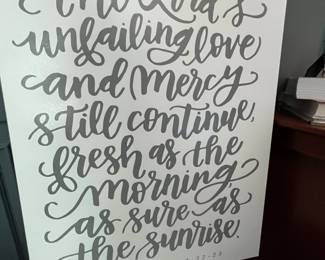 the Lord's
unfailing love
and mercy
still continue,
fresh as the
morning,
as sure as
the sunrise.